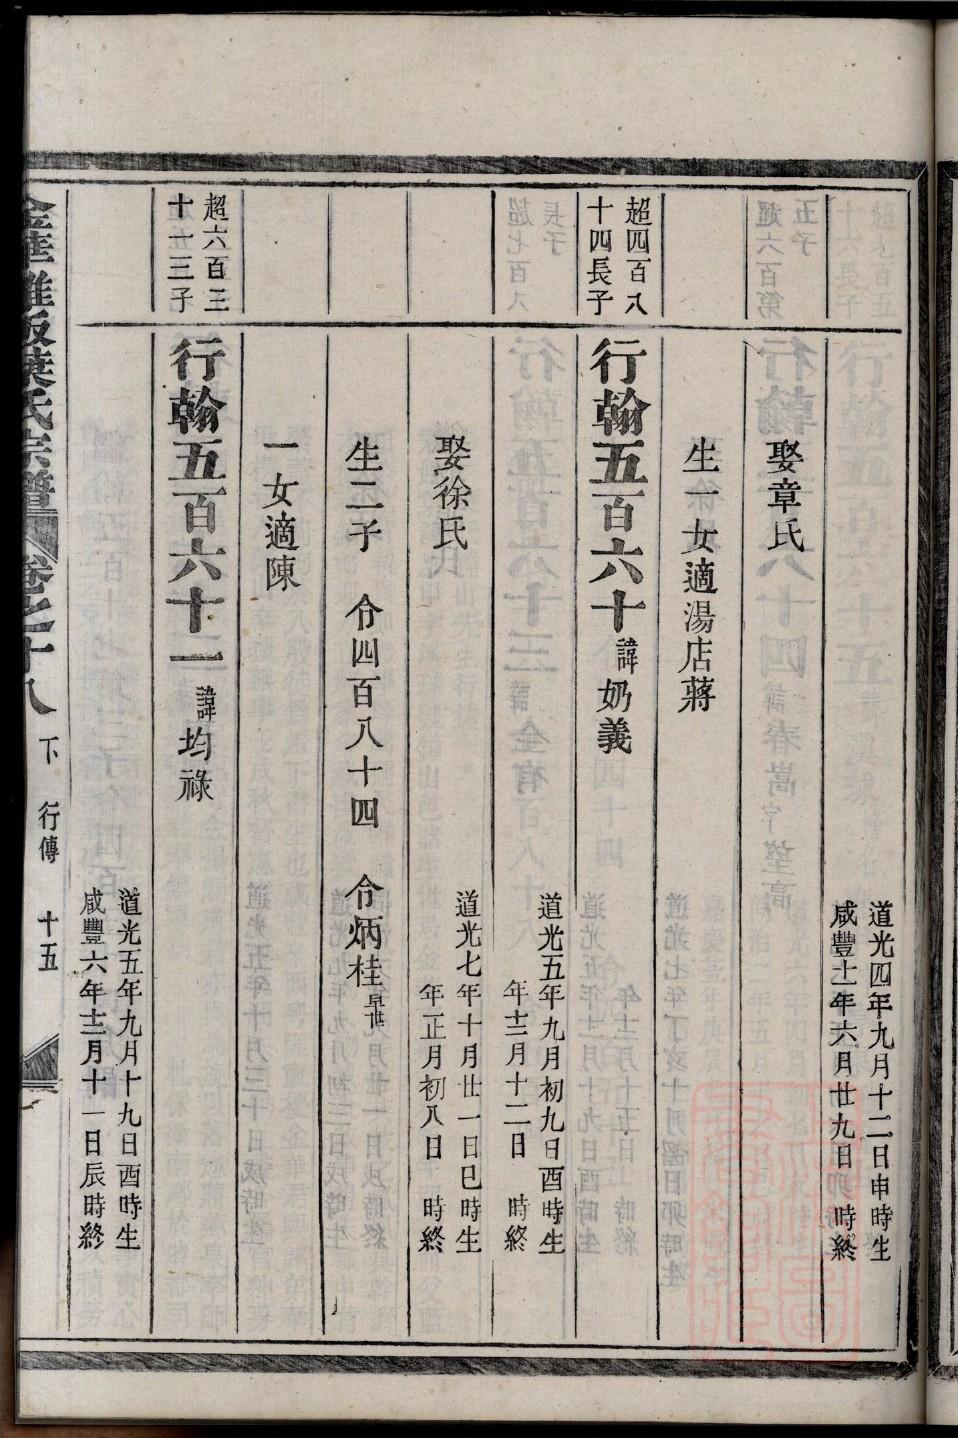 道光四年九月十二日申時生
咸豐十一年六月廿九日卯時終
娶章氏
生一女適湯店蔣
超四百八
十四長子
行翰五百六十諱奶義
道光五年九月初九日酉時生
年十二月十二日 時終
娶徐氏
道光七年十月廿一日巳時生
年正月初八日 時終
生二子 令四百八十四 令炳桂早世
一女適陳
超六百三
十一三子
行翰五百六十一諱均祿
道光五年九月十九日酉時生
咸豐六年十二月十一日辰時終
葉氏宗譜 卷之十八 下 行傳 十五